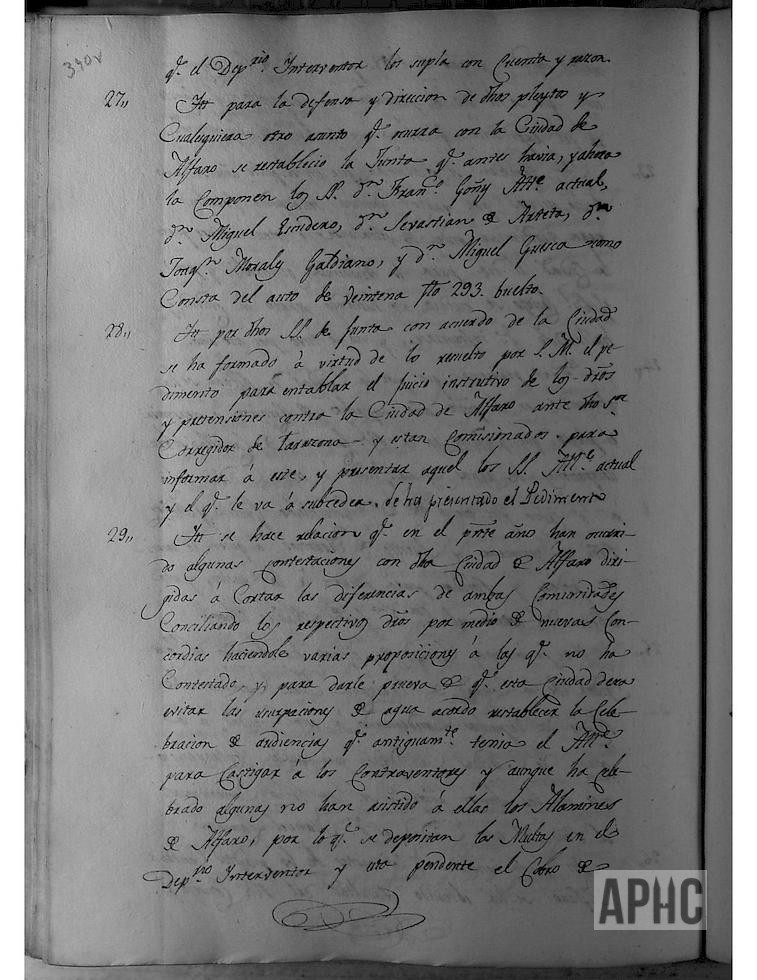 390v
q.e el Dep.rio Interventor los supla con Cuenta y razon.
27,, Itt para la defensa y direccion de dhos pleytos y
Cualesquiera otro asunto q.e ocurra con la Ciudad de
Alfaro se restablecio la Junta q.e antes havia, y ahora
la Componen los SS. d.n Fran.co Goñy Att.e actual,
d.n Miguel Escudero, d.n Sevastian de Arteta, d.n
Joaq.n Morales Galdiano, y d.n Miguel Guesca como
Consta del auto de veintena fto 293. buelto
28,, Itt por dhos SS. de Junta con acuerdo de la Ciudad
se ha formado à virtud de lo resuelto por S. M. el pe-
dimento para entablar el Juicio instrutivo de los dros
y pretensiones contra la Ciudad de Alfaro ante dho S.or
Corregidor de Tarazona y estan Comisionados para
informar á este, y presentar aquel los SS. Att.e actual
y el q.e le va á subceder. se ha presentado el Pedimento
29,, Itt se hace relacion q.e en el pnte año han ocurri-
do algunas contestaciones con dha Ciudad de Alfaro diri-
gidas á Cortar las diferencias de ambas Comunidades
Conciliando los respectivos dros por medio de nuevas Con-
cordias haciendole varias proposiciones á las q.e no ha
Contestado, y para darle prueva de q.e esta Ciudad desea
evitar las usurpaciones de agua acordo restablecer la Cele-
bracion de audiencias q.e antiguam.te tenia el Att.e
para Castigar á los Contraventores y aunque ha Cele-
brado algunas no han asistido á ellas los Alamines
de Alfaro, por lo q.e se depositan las Multas en el
Dep.rio Interventor y esta pendente el Cobro de
APHC